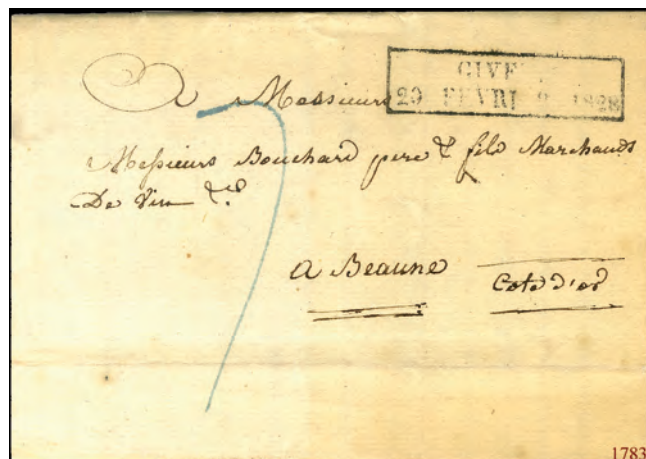 GIVE
29 FEVRI 1828
A Messieurs
Messieurs Bouchard pere & fils Marchands
De Vin &c
A Beaune
Cote d'or
7
1783